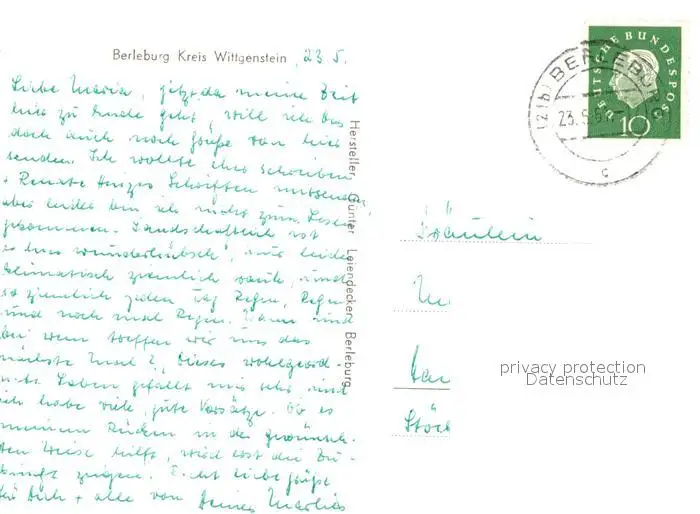 Berleburg Kreis Wittgenstein, 23.5.
Liebe Maria, jetzt da meine Zeit
hier zu Ende geht, will ich Dir
doch auch noch Grüße von hier
senden. Ich wollte eher schreiben
+ Renate Schriften mitsenden,
aber leider bin ich nicht zum Lesen
gekommen. Landschaftlich ist
es hier wunderhübsch, nur leider
klimatisch ziemlich rauh, und
so ziemlich jeden Tag Regen, Regen
und noch mal Regen. Wann und
bei wem treffen wir uns das
nächste Mal? Dieses wohlgeord-
nete Leben gefällt mir sehr und
ich habe viele gute Vorsätze. Ob es
meinem Rücken in der gewünsch-
ten Weise hilft, wird erst die Zu-
kunft zeigen. Recht liebe Grüße
für Dich + alle von Deiner Marlies
Hersteller: Günter Leiendecker, Berleburg
DEUTSCHE BUNDESPOST
10
(21b) BERLEBURG
23.5.
c
Fräulein
Stöc
privacy protection
Datenschutz